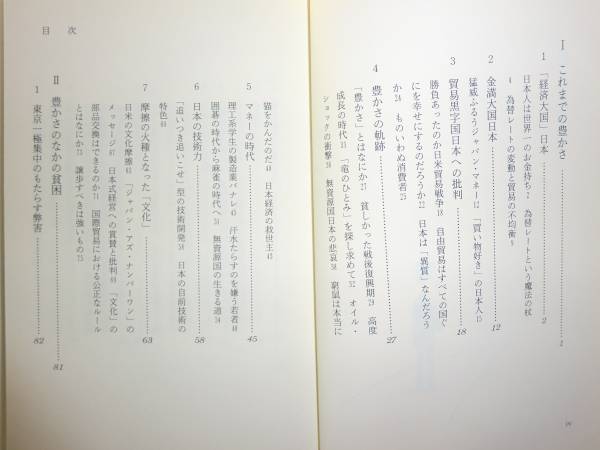 Ⅰ これまでの豊かさ……1
1 「経済大国」日本……2
日本人は世界一のお金持ち 2 為替レートという魔法の杖
4 為替レートの変動と貿易の不均衡 9
2 金満大国日本……12
猛威ふるうジャパン・マネー 12 「買い物好き」の日本人 15
3 貿易黒字国日本への批判……18
勝負あったのか日米貿易戦争 18 自由貿易はすべての国ぐ
にを幸せにするのだろうか 22 日本は「異質」なんだろう
か 24 ものいわぬ消費者 25
4 豊かさの軌跡……27
「豊かさ」とはなにか 27 貧しかった戦後復興期 29 高度
成長の時代 31 「竜のひとみ」を探し求めて 32 オイル・
ショックの衝撃 36 無資源国日本の悲哀 38 窮鼠は本当に
iv
目次
猫をかんだのだ 40 日本経済の救世主 43
5 マネーの時代……45
理工系学生の製造業バナレ 45 汗水たらすのを嫌う若者 48
囲碁の時代から麻雀の時代へ 51 無資源国の生きる道 54
6 日本の技術力……58
「追いつき追いこせ」型の技術開発 58 日本の自前技術の
特色 60
7 摩擦の火種となった「文化」……63
日米の文化摩擦 63 「ジャパン・アズ・ナンバーワン」の
メッセージ 67 日本式経営への賞賛と批判 69 「文化」の
部品交換はできるのか 71 国際貿易における公正なルール
とはなにか 73 譲歩すべきは強いもの 75
Ⅱ 豊かさのなかの貧困……81
1 東京一極集中のもたらす弊害……82